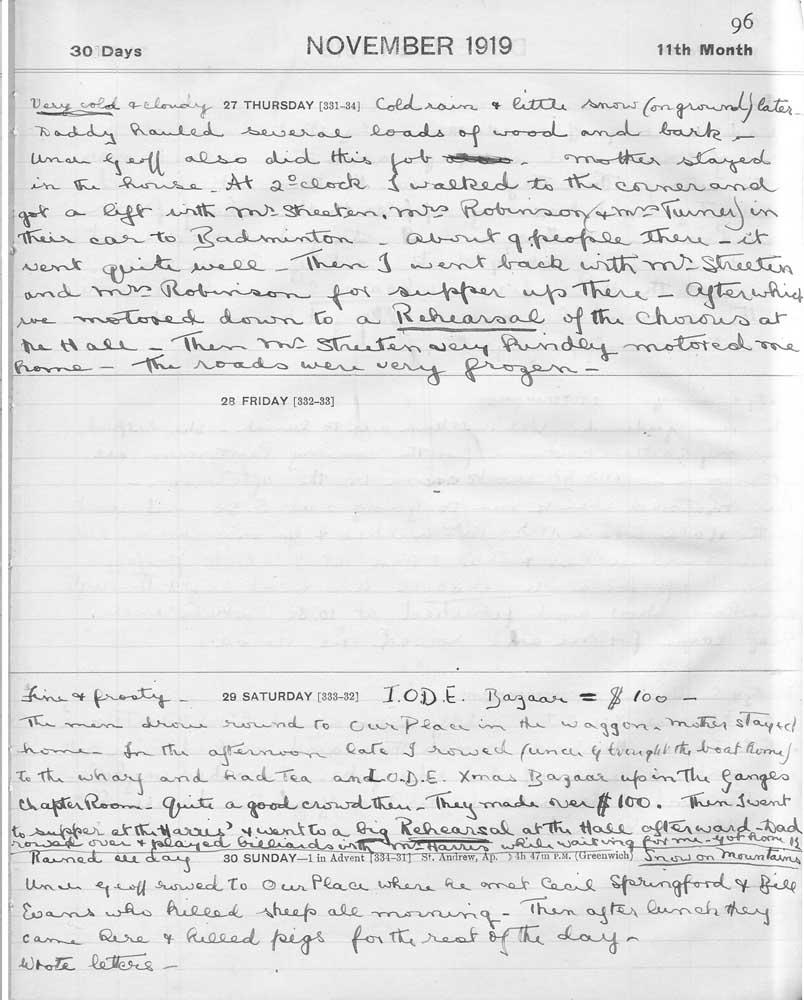 96
30 Days NOVEMBER 1919 11th Month
Very cold & cloudy 27 THURSDAY [331-34] Cold rain & little snow (on ground) later -
Daddy hauled several loads of wood and bark -
Uncle Geoff also did this job. Mother stayed
in the house - At 2 o'clock I walked to the corner and
got a lift with Mr Streeten, Mrs Robinson (& Mrs Turner) in
their car to Badminton - about 9 people there - it
went quite well - Then I went back with Mr Streeten
and Mrs Robinson for supper up there - After which
we motored down to a Rehearsal of the Chorous at
the Hall - Then Mr Streeten very kindly motored me
home - the roads were very frozen -
28 FRIDAY [332-33]
Fine & frosty - 29 SATURDAY [333-32] I.O.D.E. Bazaar = $100 -
The men drove round to Our Place in the waggon. Mother stayed
home - In the afternoon late I rowed (Uncle G brought the boat home)
to the wharf and had Tea and I.O.D.E. Xmas Bazaar up in the Ganges
Chapter Room - Quite a good crowd there - They made over $100. Then I went
to supper at the Harris' & went to a big Rehearsal at the Hall afterward - Dad
rowed over & played billiards with Mr Harris while waiting for me - got home
Rained all day 30 SUNDAY—1 in Advent [334-31] St. Andrew, Ap. ☽ 4h 47m P.M. (Greenwich) Snow on Mountains
Uncle Geoff rowed to Our Place where he met Cecil Springford & Bill
Evans who killed sheep all morning - Then after lunch they
came here & killed pigs for the rest of the day -
Wrote letters -